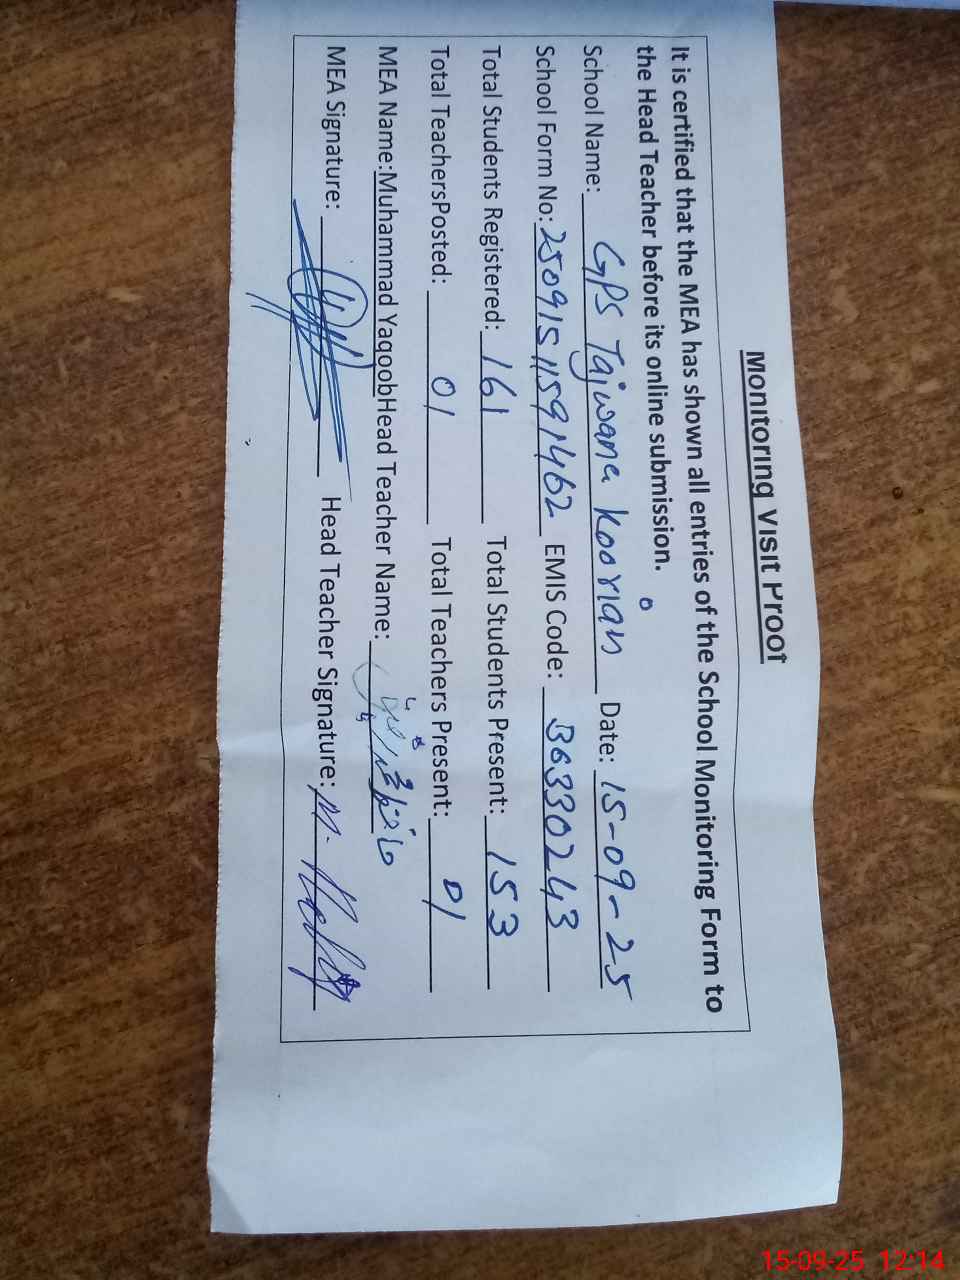 Monitoring Visit Proof
It is certified that the MEA has shown all entries of the School Monitoring Form to
the Head Teacher before its online submission.
School Name: GPS Tajwana Koorian Date: 15-09-25
School Form No: 25091511591462 EMIS Code: 36330243
Total Students Registered: 161 Total Students Present: 153
Total TeachersPosted: 01 Total Teachers Present: 01
MEA Name:Muhammad YaqoobHead Teacher Name:
MEA Signature: Head Teacher Signature: M.
15-09-25 12:14